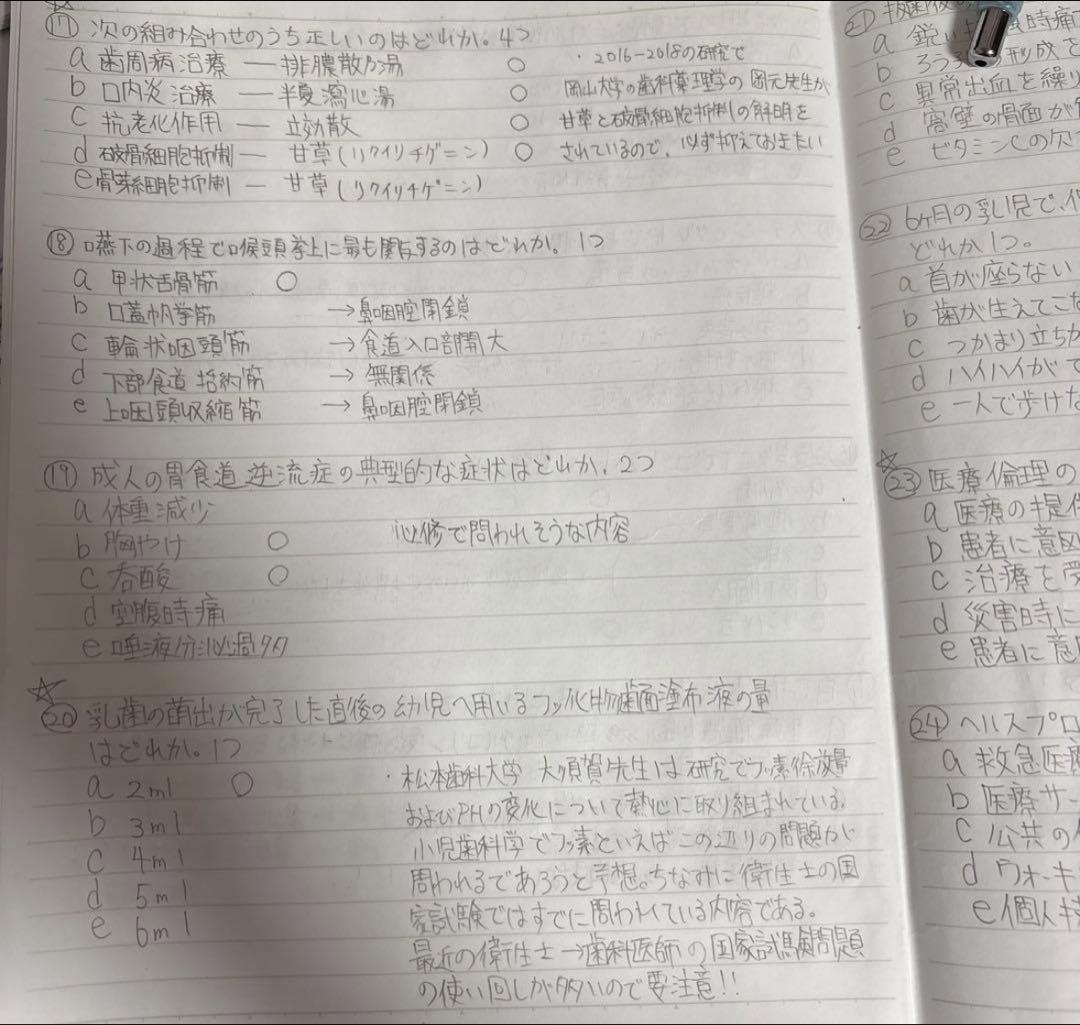 ⑰ 次の組み合わせのうち正しいのはどれか。4つ
a 歯周病治療 ― 排膿散乃湯 ○
b 口内炎治療 ― 半夏瀉心湯 ○
c 抗老化作用 ― 立効散 ○
d 破骨細胞抑制 ― 甘草(リクイリチゲニン) ○
e 骨芽細胞抑制 ― 甘草(リクイリチゲニン)
・2016-2018の研究で
岡山大学の歯科薬理学の岡元先生が
甘草と破骨細胞抑制の解明を
されているので、必ず抑えておきたい
⑱ 嚥下の過程で喉頭挙上に最も関与するのはどれか。1つ
a 甲状舌骨筋 ○
b 口蓋帆挙筋 → 鼻咽腔閉鎖
c 輪状咽頭筋 → 食道入口部開大
d 下部食道括約筋 → 無関係
e 上咽頭収縮筋 → 鼻咽腔閉鎖
⑲ 成人の胃食道逆流症の典型的な症状はどれか。2つ
a 体重減少
b 胸やけ ○
c 呑酸 ○
d 空腹時痛
e 唾液分泌過多
必修で問われそうな内容
☆
⑳ 乳歯の萌出が完了した直後の幼児へ用いるフッ化物歯面塗布液の量
はどれか。1つ
a 2ml ○
b 3ml
c 4ml
d 5ml
e 6ml
・松本歯科大学 大須賀先生は研究でフッ素徐放量
およびPHの変化について熱心に取り組まれている。
小児歯科学でフッ素といえばこの辺りの問題が
問われるであろうと予想。ちなみに衛生士の国
家試験ではすでに問われている内容である。
最近の衛生士→歯科医師の国家試験問題
の使い回しが多いので要注意!!
㉑ 抜歯後
a 鋭い 時痛
b ろう 形成を
c 異常出血を繰り
d 窩壁の骨面が
e ビタミンCの欠
㉒ 6ヶ月の乳児で、
どれか1つ。
a 首が座らない
b 歯が生えてこな
c つかまり立ちが
d ハイハイがで
e 一人で歩けな
☆
㉓ 医療倫理の
a 医療の提供
b 患者に意図
c 治療を受
d 災害時に
e 患者に意
㉔ ヘルスプロ
a 救急医療
b 医療サー
c 公共の
d ウォーキ
e 個人